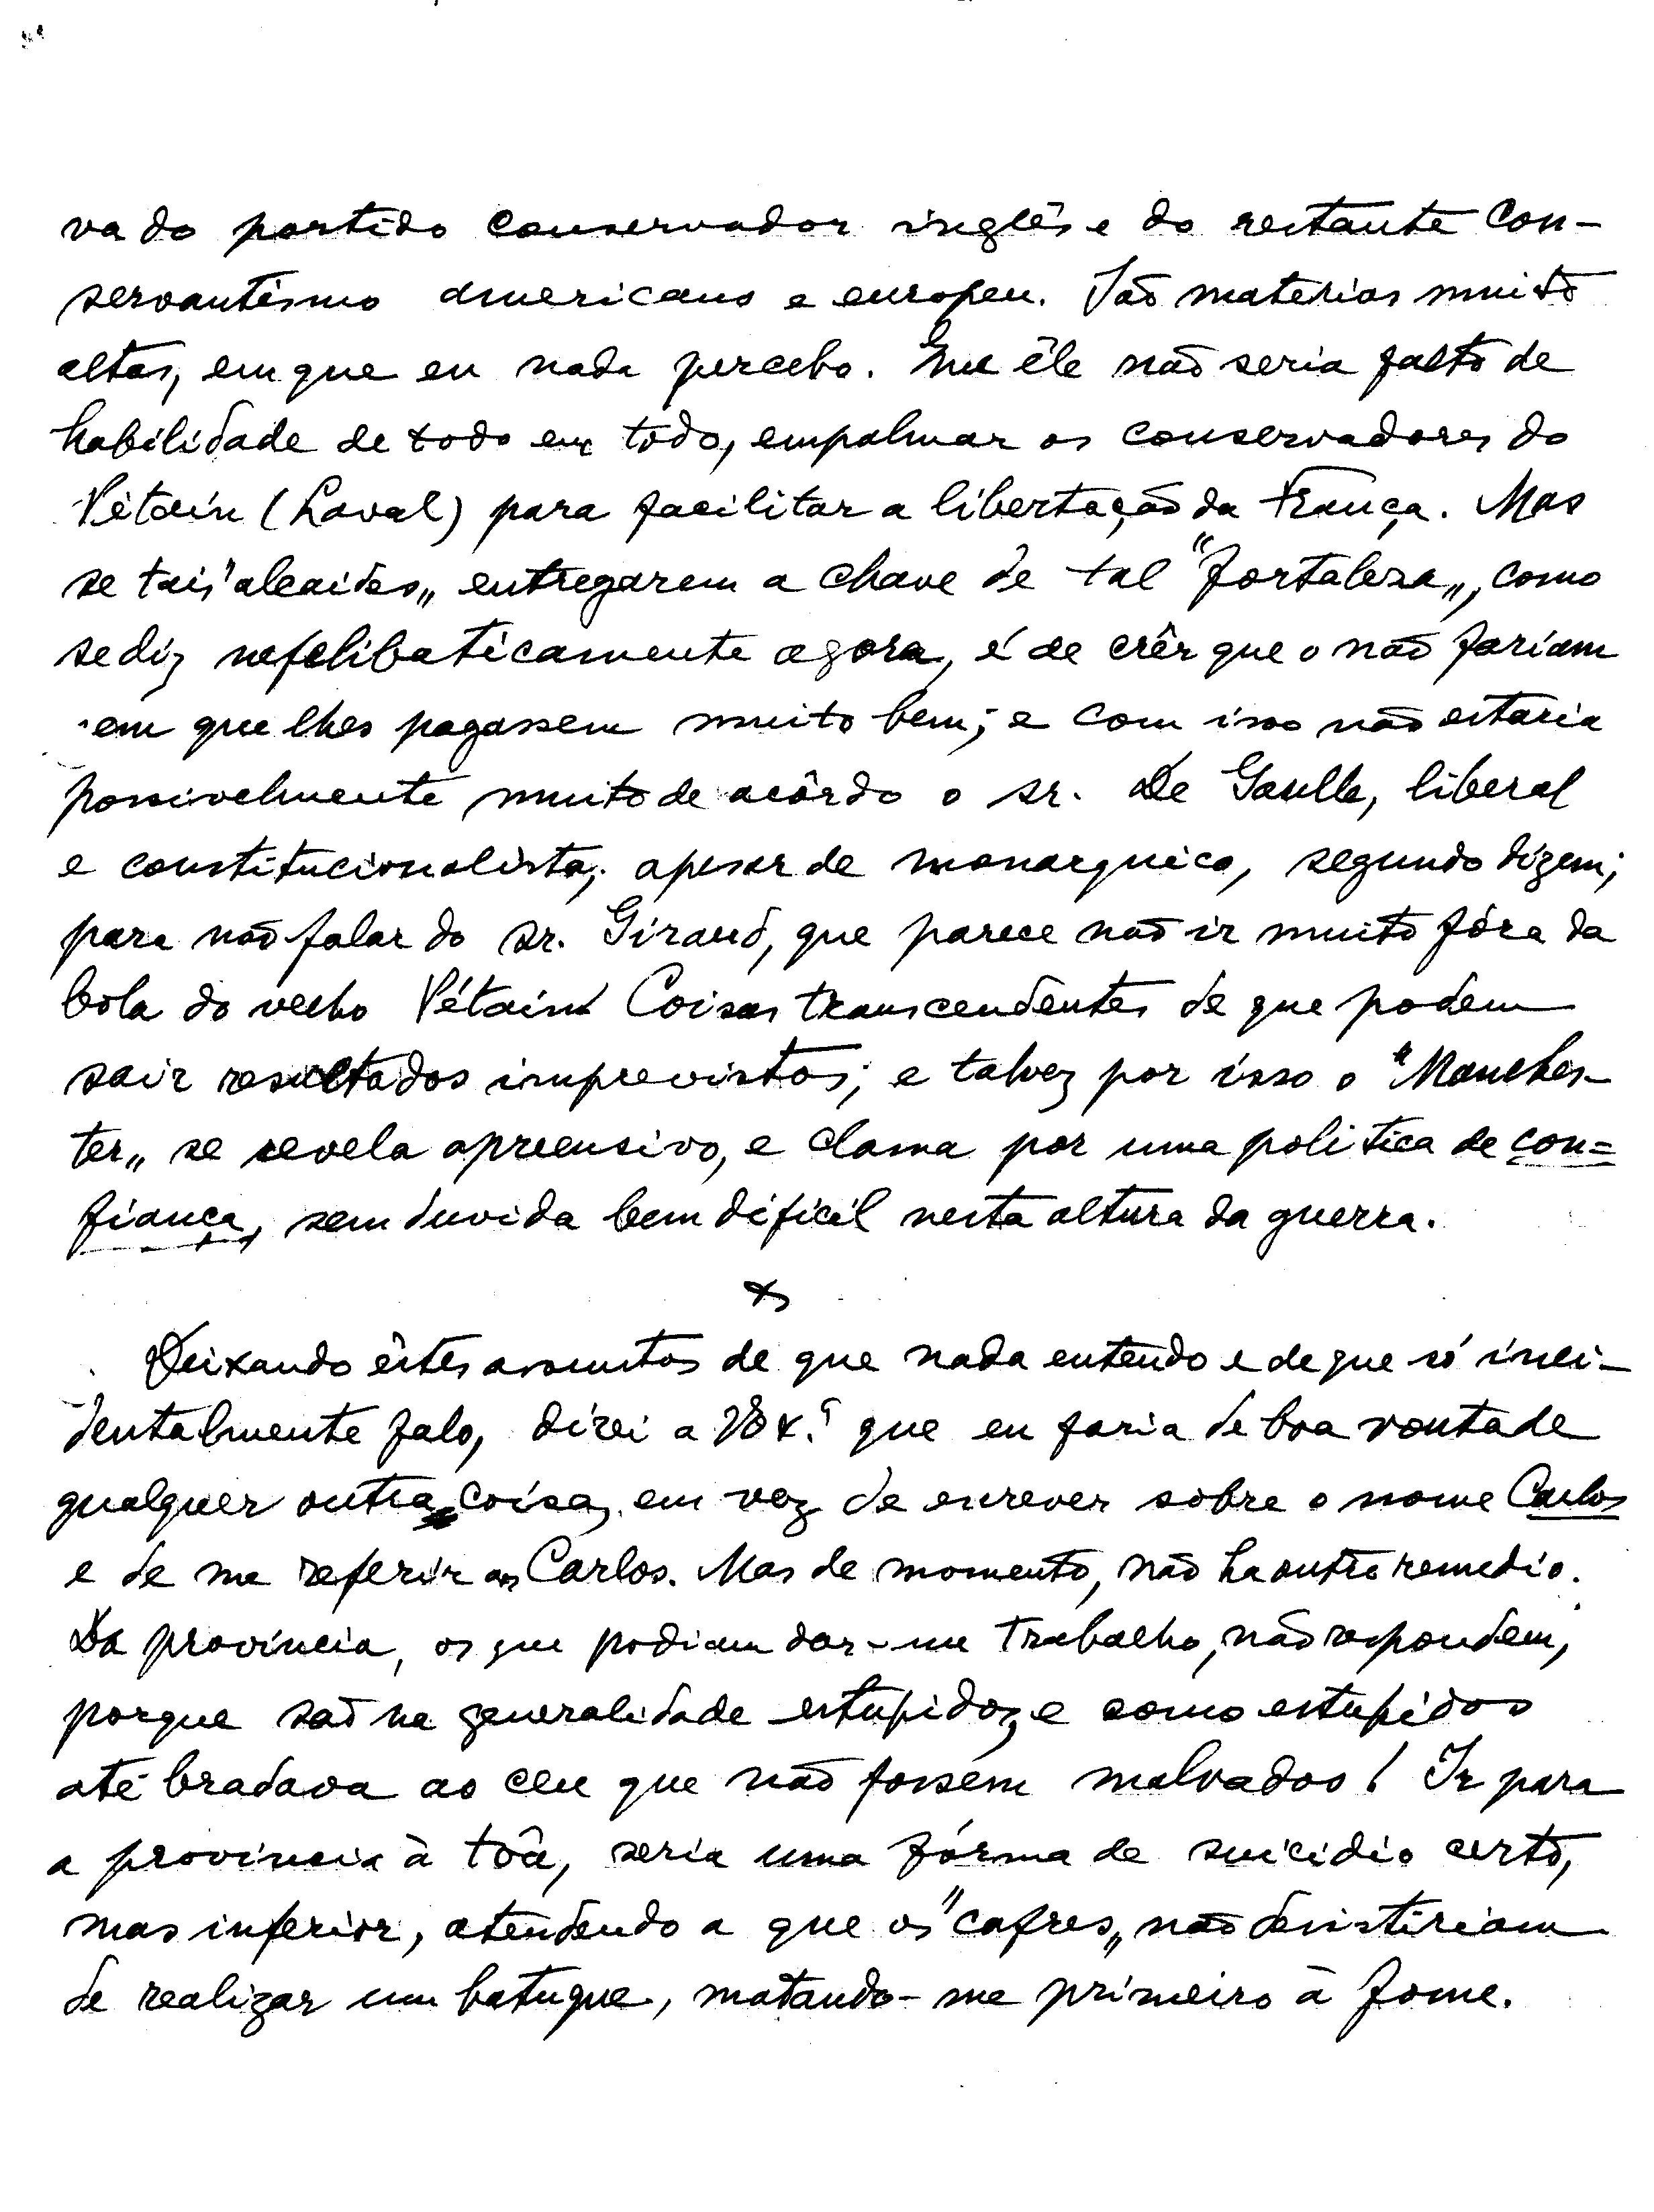 va do partido conservador inglês e do restante con-
servantismo americano e europeu. São materias muito
altas, em que eu nada percebo. êle não seria falto de
habilidade de todo em todo, empalmar os conservadores do
Pétain (Laval) para facilitar a libertação da França. Mas
se tais "alcaides„ entregarem a chave de tal "fortaleza„, como
se diz nefelibaticamente agora, é de crêr que o não fariam
sem que lhes pagassem muito bem; e com isso não estaria
possivelmente muito de acôrdo o sr. De Gaulle, liberal
e constitucionalista, apesar de monarquico, segundo dizem;
para não falar do sr. Giraud, que parece não ir muito fóra da
bola do velho Pétain! Coisas transcendentes de que podem
sair resultados imprevistos; e talvez por isso o "Manches-
ter„ se revela apreensivo, e clama por uma politica de con=
fiança, sem duvida bem dificil nesta altura da guerra.
Deixando êstes assuntos de que nada entendo e de que só inci-
dentalmente falo, direi a que eu faria de boa vontade
qualquer outra coisa, em vez de escrever sobre o nome Carlos
e de me referir aos Carlos. Mas de momento, não ha outro remedio.
Da provincia, os que podiam dar-me trabalho, não respondem,
porque são na generalidade estupidos, e como estupidos
até bradava ao ceu que não fossem malvados! Ir para
a provincia à tôa, seria uma fórma de suicidio certo,
mas inferior, atendendo a que os "cafres„ não desistiriam
de realizar um batuque, matando-me primeiro à fome.